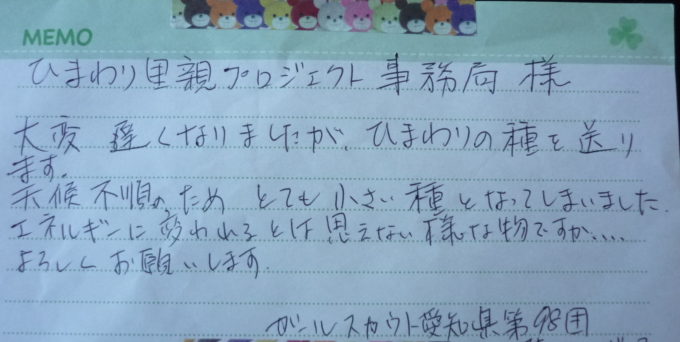 MEMO
ひまわり里親プロジェクト事務局 様
大変 遅くなりましたが、ひまわりの種を送り
ます。
天候不順のため とても小さい種となってしまいました.
エネルギーに変われるとは思えない様な物ですが、...
よろしくお願いします.
ガールスカウト愛知県第98団